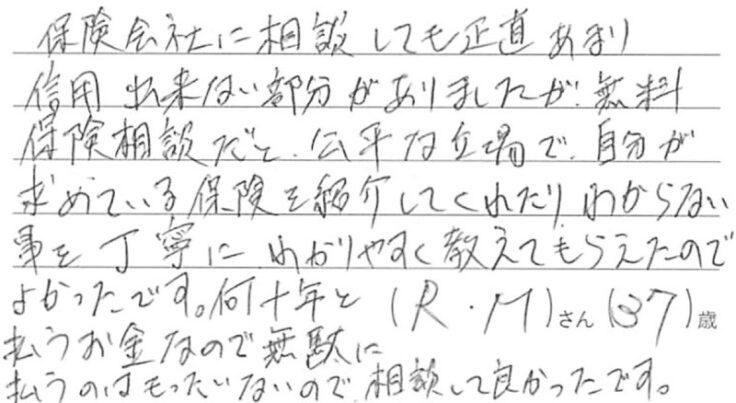 保険会社に相談しても正直あまり
信用出来ない部分がありましたが、無料
保険相談だと、公平な立場で、自分が
求めている保険を紹介してくれたりわからない
事を丁寧にわかりやすく教えてもらえたので
よかったです。何十年と (R・M)さん(37)歳
払うお金なので無駄に
払うのはもったいないので、相談して良かったです。